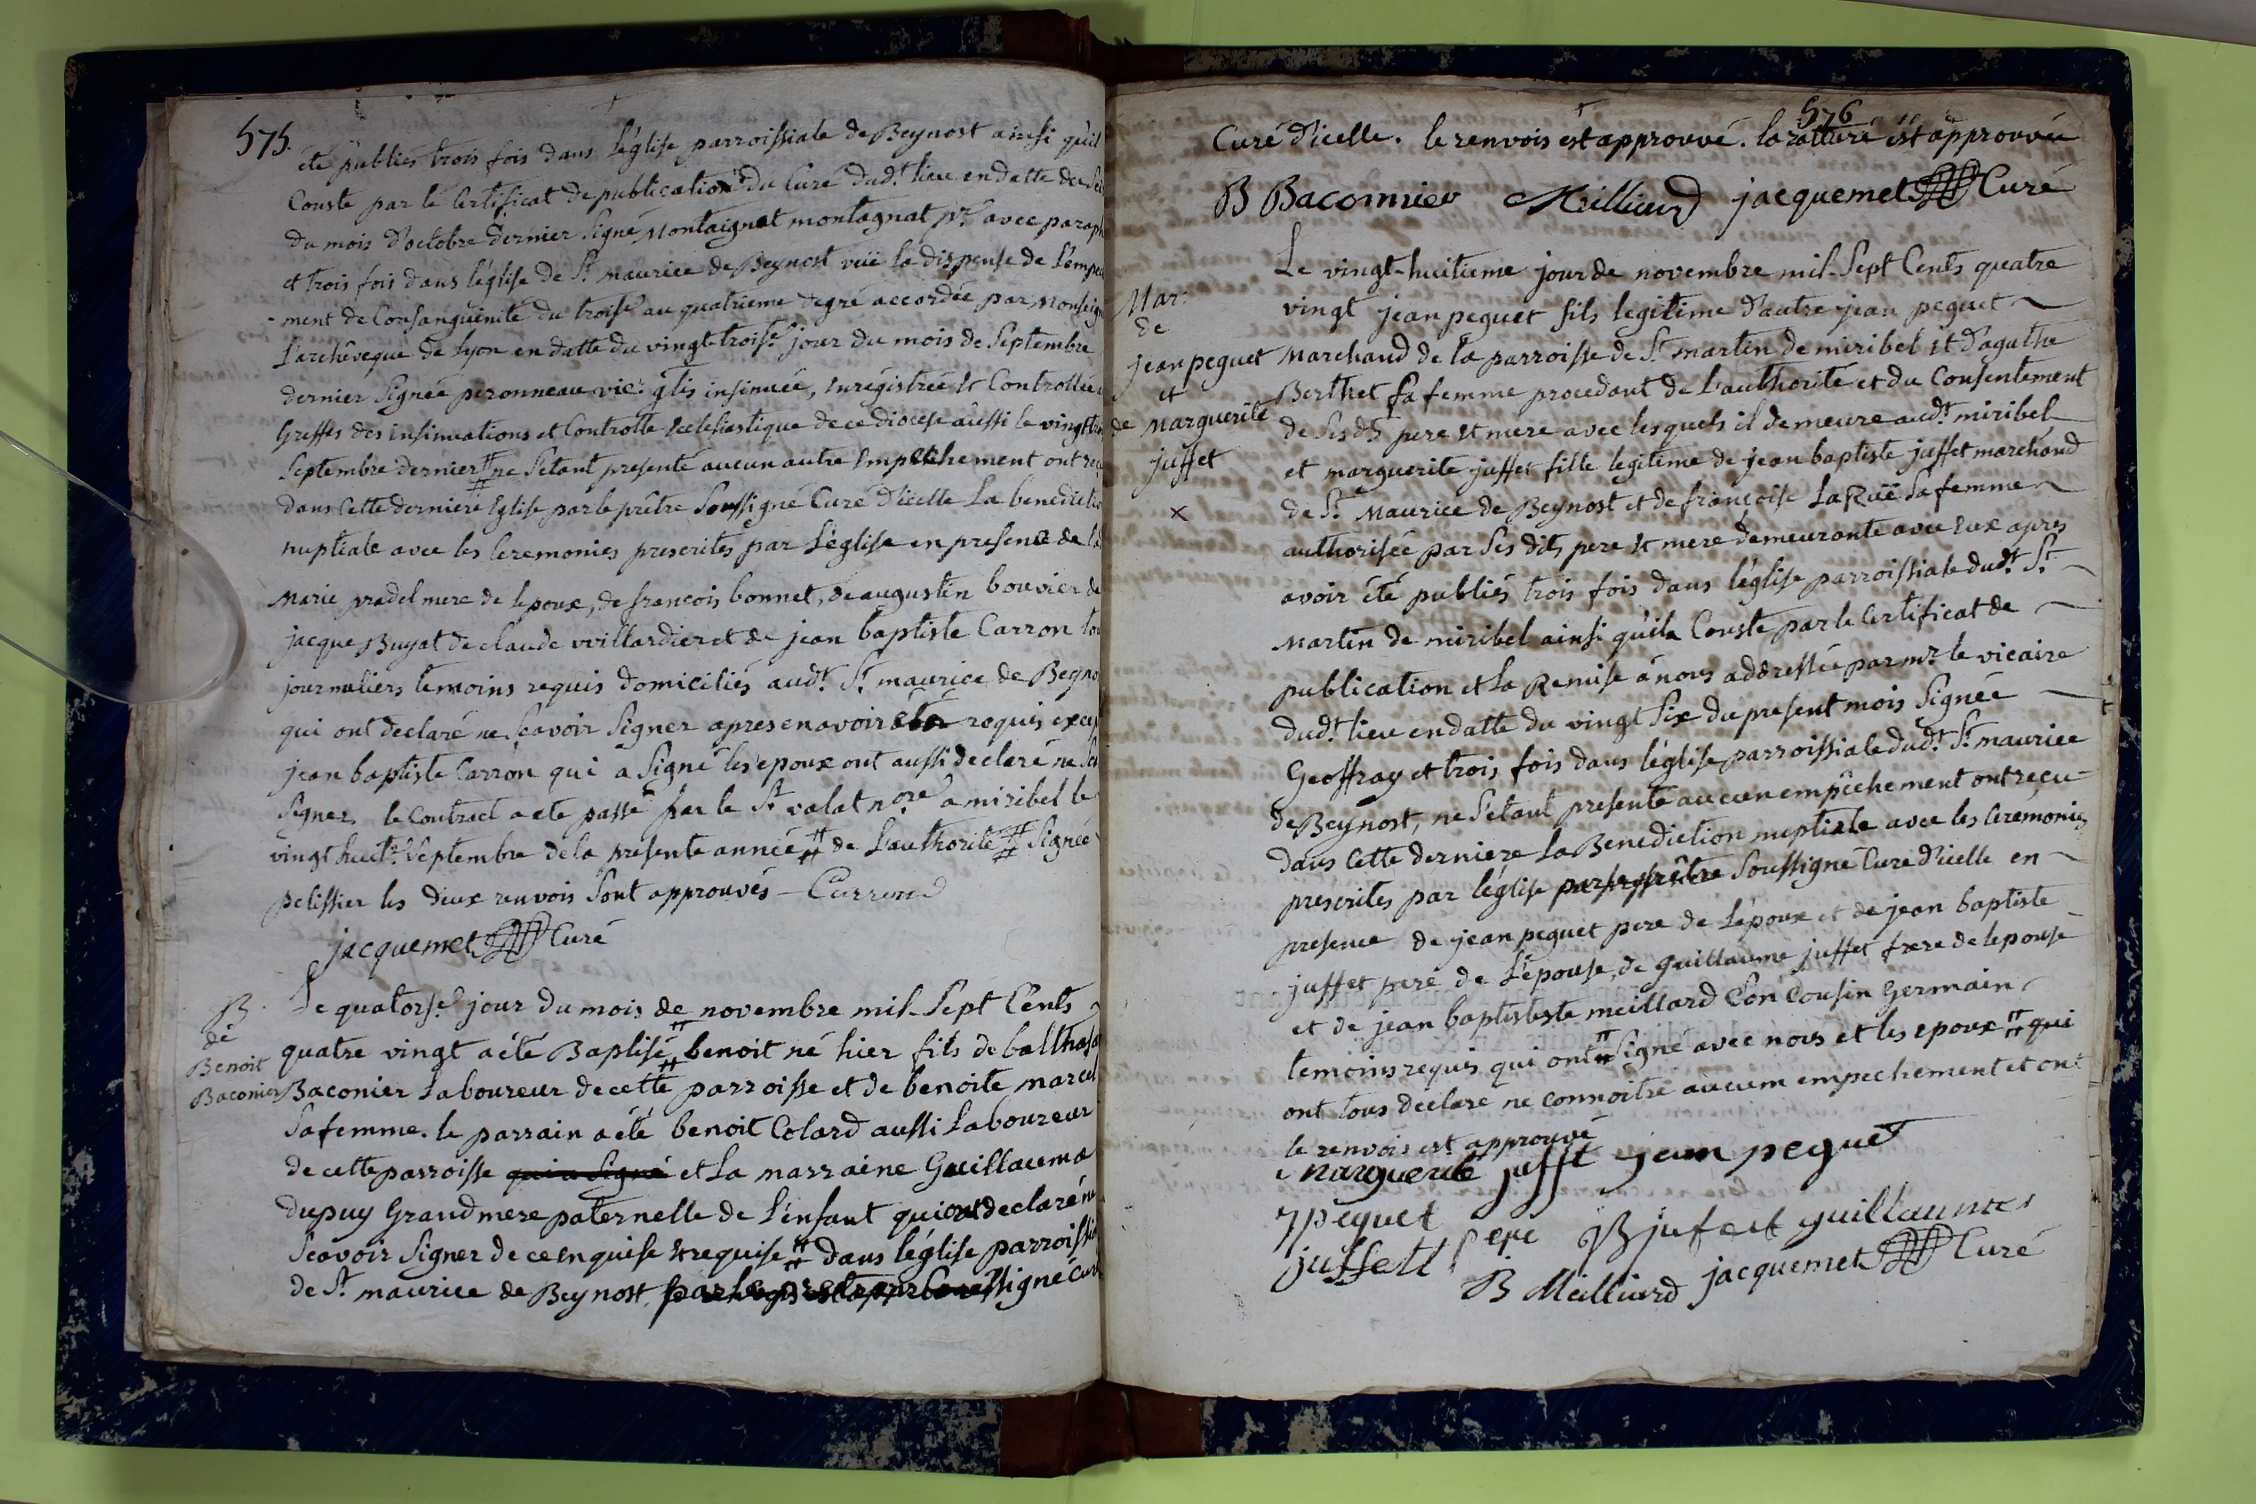 575.
été publiés trois fois dans l'église parroissiale de Beynost ainsi qu'il
Conste par le Certificat de publication du Curé dudt. lieu en datte du
du mois d'octobre dernier Signé Montaignat montagnat ptre avec paraphe
et trois fois dans l'église de St. Maurice de Beynost vüë la dispense de L'empe
-ment de Consanguinité du trois.e au quatrieme degré accordée par Monseig
L'archêveque de Lyon en datte du vingt-trois.e jour du mois de Septembre
dernier Signée peronneau vic. g'lis insinuée, Enregistrée Et Controllée
Greffes des insinuations et Controlle Ecclesiastique de ce diocese aussi le vingt-
Septembre dernier # ne S'etant presenté aucun autre Empechement ont reçu
dans Cette derniere Eglise par le prêtre Soussigné Curé d'icelle La benediction
nuptiale avec les Ceremonies prescrites par L'église en presence de
Marie pradel mere de lepoux, de françois bonnet, de augustin bouvier de
jacque Buyat de claude vuillardier et de jean baptiste Carron
journaliers temoins requis domiciliés audt. St. maurice de Beyno
qui ont declaré ne sçavoir Signer apres en avoir été requis
jean baptiste Carron qui a Signé les epoux ont aussi declaré ne
Signer. le Contract a ete passé par le Sr valat nore a miribel le
vingt huit.e Septembre de la presente année # de L'authorité # Signée
pelissier les deux renvois Sont approuvés – Carron
jacquemet Curé
B.
de
Benoit
Baconier
Le quators.e jour du mois de novembre mil-Sept Cents
quatre vingt a été Baptisé benoit né hier fils de balthasa
Baconier Laboureur de cette parroisse et de benoite marcel
Sa femme. le parrain a été benoit Colard aussi Laboureur
de cette parroisse qui a Signé et La marraine Guillauma
dupuy Grandmere paternelle de L'enfant qui ont declaré ne
Scavoir Signer de ce enquise Et requise # dans l'église parroissi
de St. maurice de Beynost Soussigné curé
576
Curé d'icelle. le renvois est approuvé. la ratturé est approuvée
B Baconnier Milliard jacquemet Curé
Mar:
de
jean peguet
et
de Marguerite
juffet
x
Le vingt-huitieme jour de novembre mil-Sept Cents quatre
vingt jean peguet fils legitime d'autre jean peguet
Marchand de la parroisse de St. martin de miribel Et d'agathe
Berthet sa femme procedant de L'authorité et du Consentement
de Sesds pere Et mere avec lesquels il demeure audt. miribel
et marguerite juffet fille legitime de jean baptiste juffet marchand
de St. Maurice de Beynost et de françoise LaRuë Sa femme
authorisée par Ses dits pere Et mere demeurante avec Eux apres
avoir été publiés trois fois dans l'église parroissiale dudt. St.
Martin de miribel ainsi qu'il Conste par le Certificat de
publication et La Remise à nous addressée par mr. le vicaire
dudt. lieu en datte du vingt Six du present mois Signée
Geoffray et trois fois dans l'église parroissiale dudt. St. maurice
de Beynost, ne S'etant presenté aucun empêchement ont reçu
dans Cette derniere La Benediction nuptiale avec les Ceremonies
prescrites par l'église par le prêtre Soussigné Curé d'icelle en
presence de jean peguet pere de L'epoux et de jean baptiste
juffet pere de L'épouse, de guillaume juffet frere de lepouse
et de jean baptististe meillard Son Cousin Germain
temoins requis qui ont # Signé avec nous et les epoux # qui
ont tous declare ne connoitre aucun empechement et ont
le renvois est approuvé
marguerite juffet jean peguet
J peguet pere JB jufeit guillaumes
juffett
B Milliard jacquemet Curé